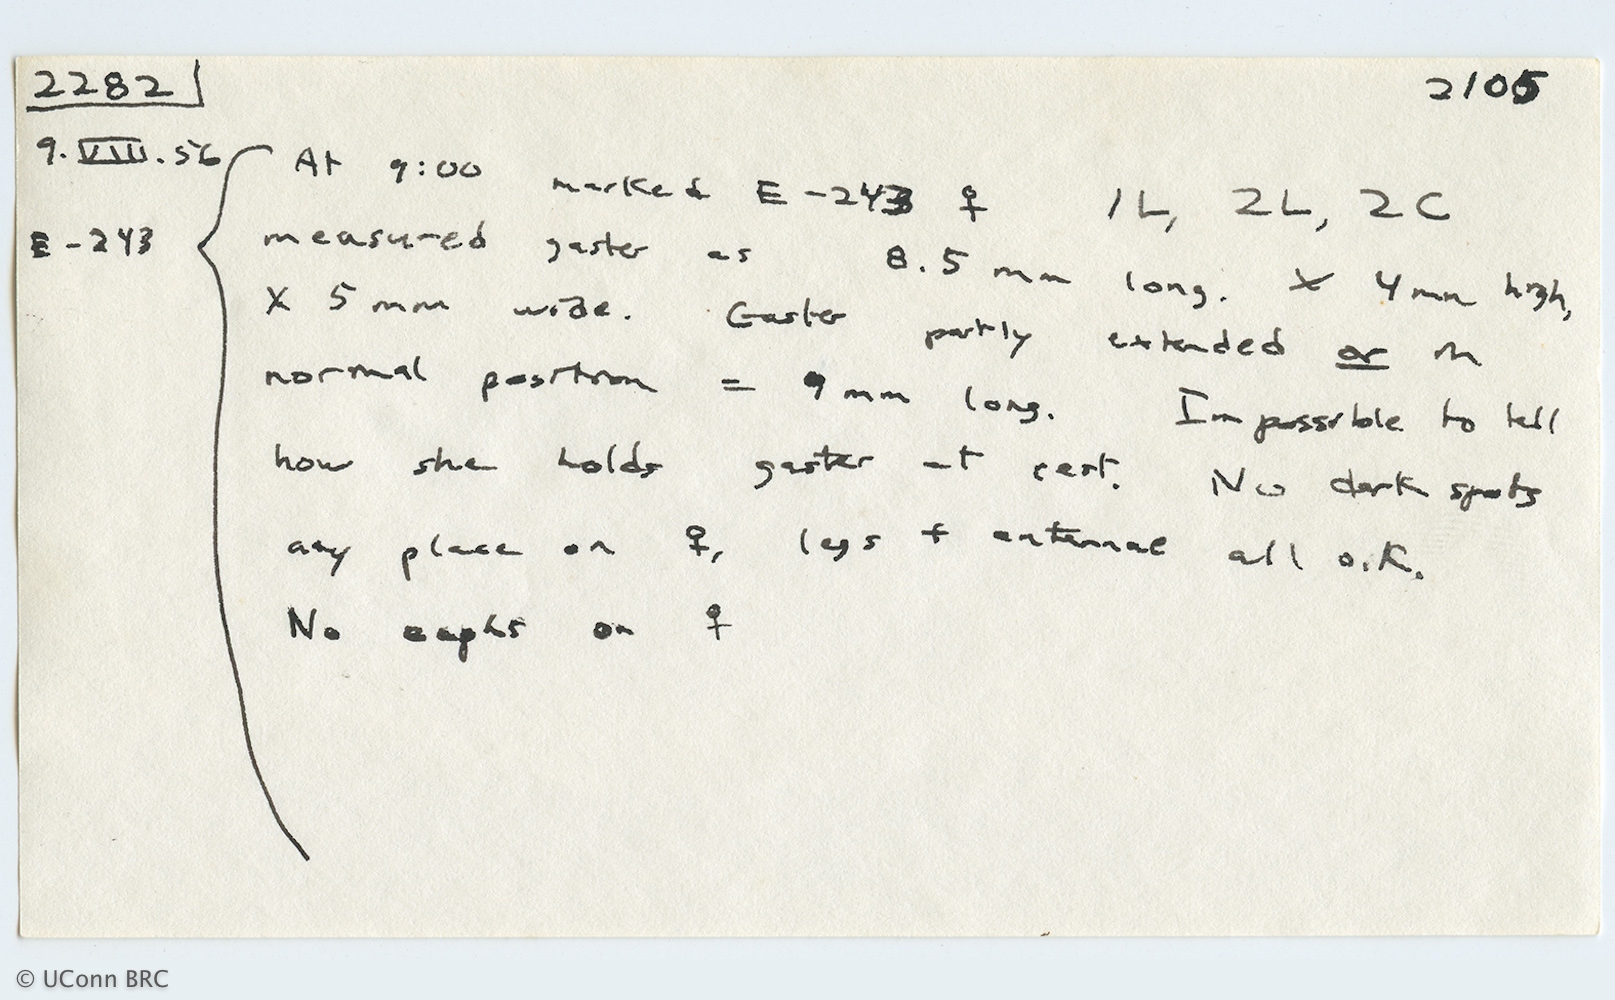 2282 2105
9.VIII.56 At 9:00 marked E-243 ♀ 1L, 2L, 2C
E-243 measured gaster as 8.5 mm long. x 4mm high,
x 5 mm wide. Gaster partly extended or in
normal position = 9 mm long. Impossible to tell
how she holds gaster at rest. No dark spots
any place on ♀, legs + antennae all o.k.
No ecphs on ♀
© UConn BRC